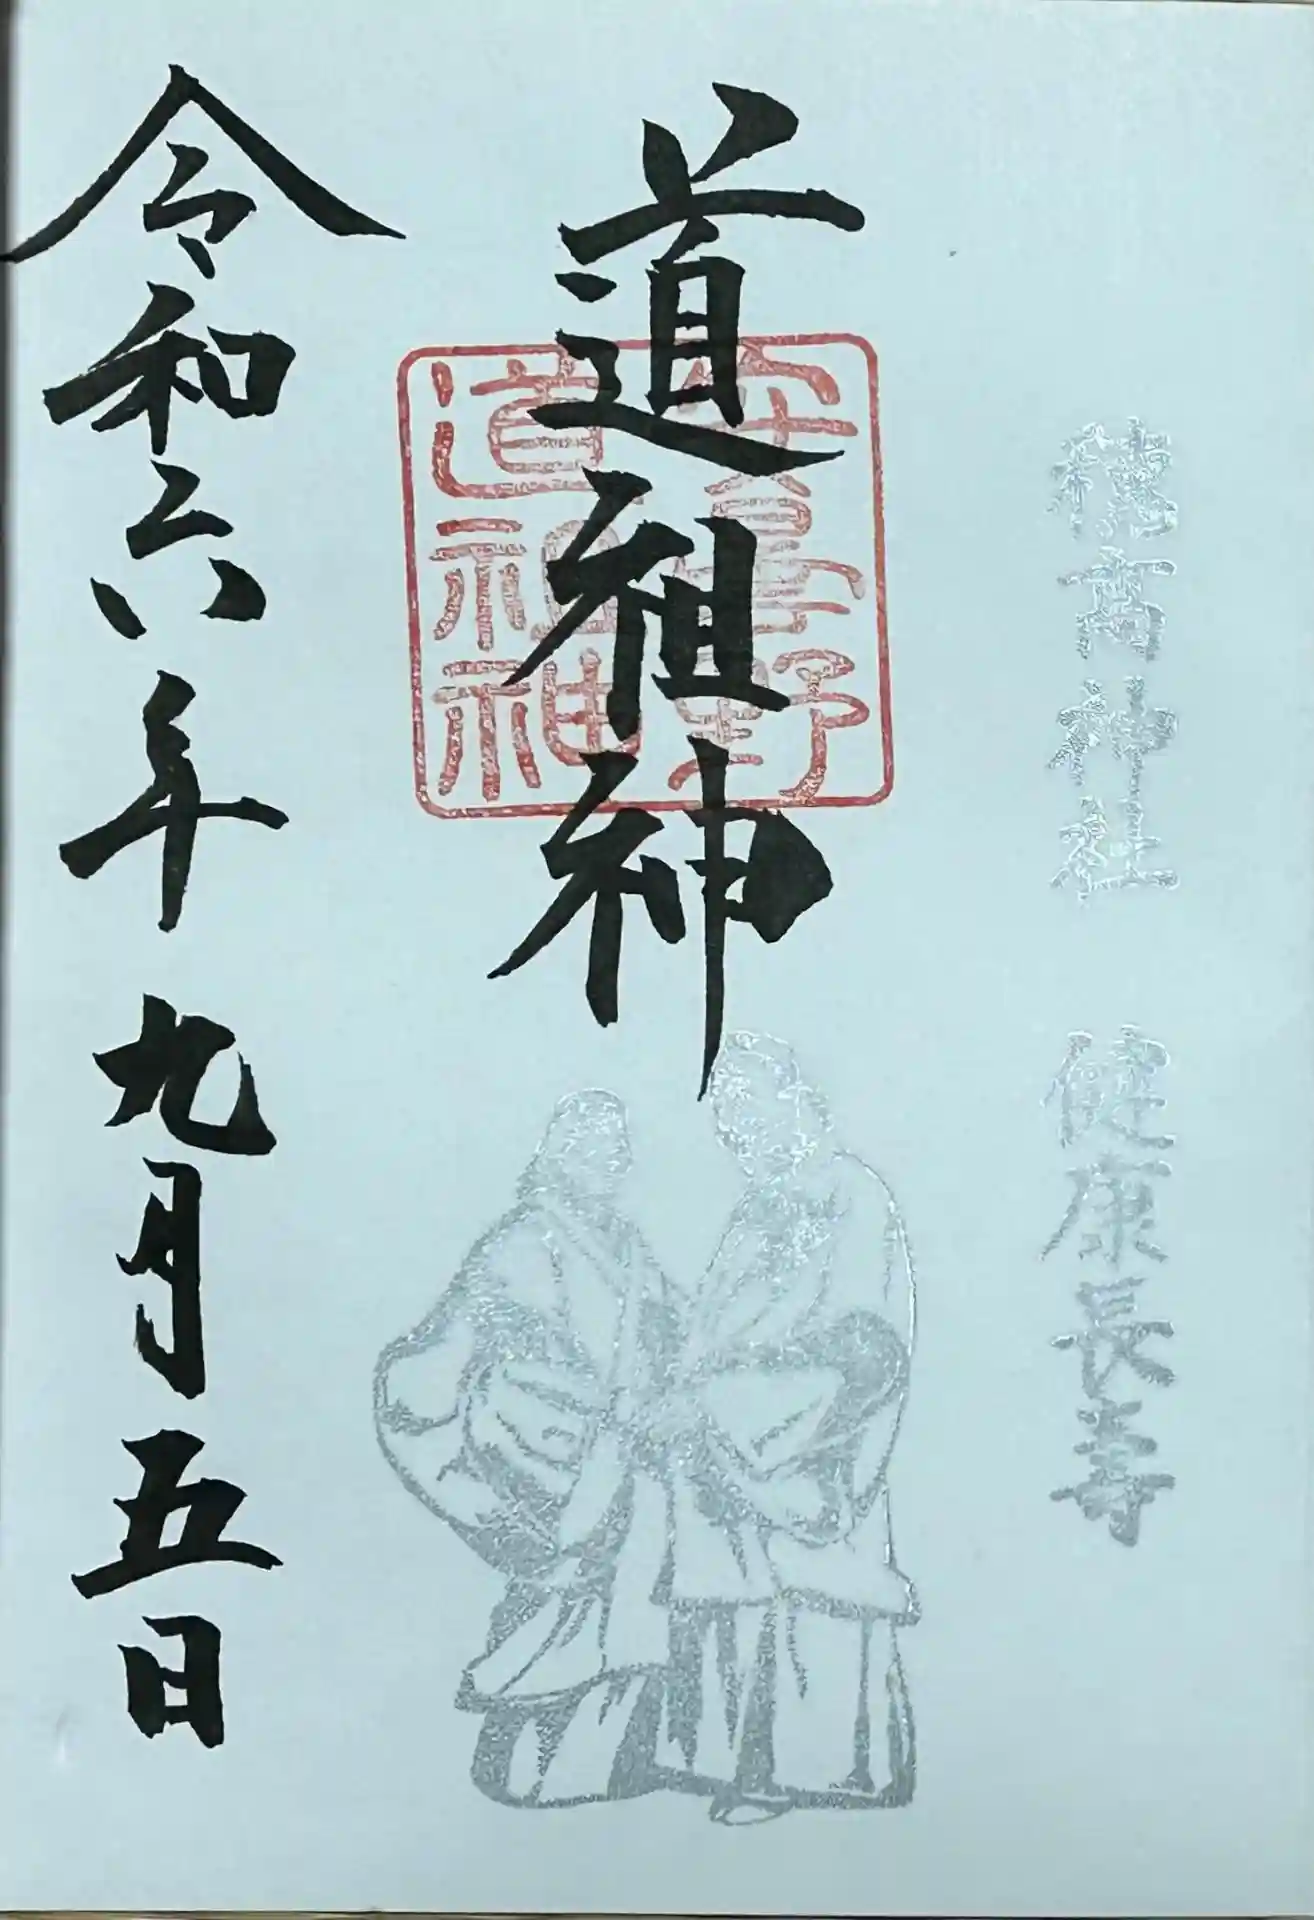 穂高神社 健康長寿
道祖神
安曇野
道祖神
令和六年九月五日